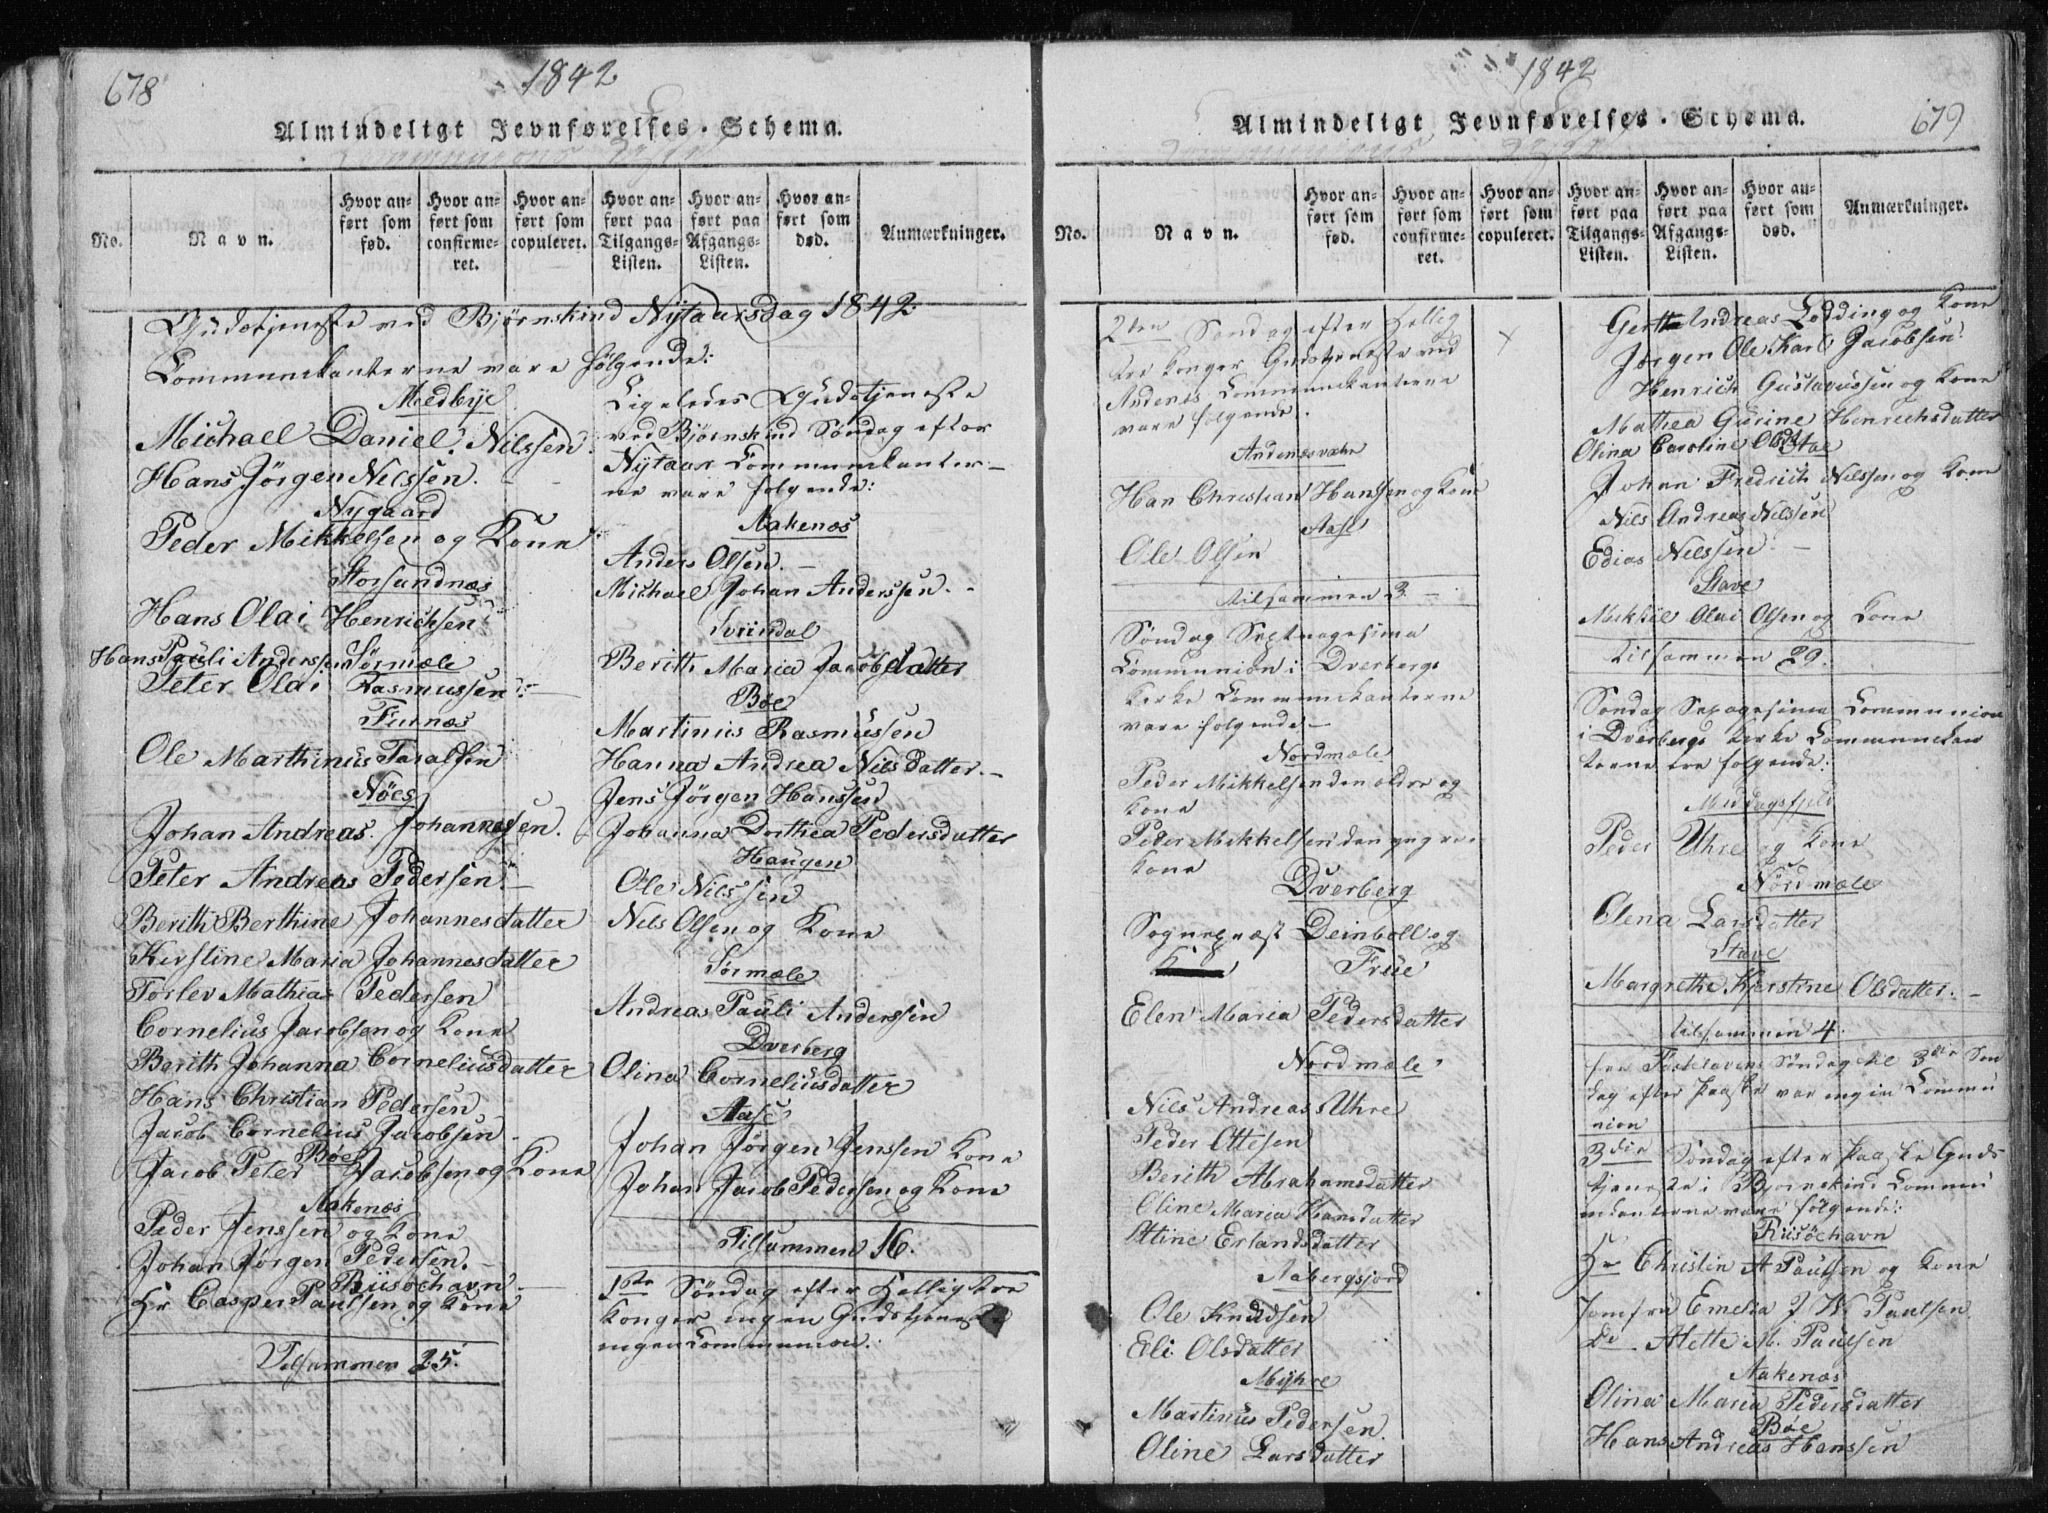 678
1842
Almindeligt Jevnførelses-Schema.
No.
Navn.
Hvor an-
ført som
fød.
Hvor an-
ført som
confirme-
ret.
Hvor an-
ført som
copuleret.
Hvor an-
ført paa
Tilgangs-
Listen.
Hvor an-
ført paa
Afgangs-
Listen.
Hvor an-
ført som
død.
Anmærkninger.
Gudstjeneste ved Bjørnskind Nytaarsdag 1842
Communikanterne vare følgende:
Medbye
Michael Daniel Nilssen
Hans Jørgen Nilssen.
Nygaard
Peder Mikkelsen og Kone
Storsundnæs
Hans Olai Henrichsen
Hans Pauli Anderssen Sørmæle
Peter Olai Rasmussen
Furnæs
Ole Marthinus Taralsen
Nöes
Johan Andreas Johannessen.
Peter Andreas Pedersen
Berith Berthine Johannesdatter
Kirstine Maria Johannesdatter
Torlev Mathias Pedersen
Cornelius Jacobsen og Kone
Berith Johanna Corneliusdatter
Hans Christian Pedersen
Jacob Cornelius Jacobsen
Böe
Jacob Peter Jacobsen og Kone
Aakenæs
Peder Jenssen og Kone
Johan Jørgen Pedersen.
Riisöehavn
Hr Casper Paulsen og Kone
Tilsammen 25.
Ligeledes Gudstjeneste
ved Bjørnskind Søndag efter
Nytaar Communikanter-
ne vare følgende:
Aakenæs
Anders Olsen.
Michael Johan Anderssen.
Svindal
Berith Maria Jacobsdatter
Böe
Martinus Rasmussen
Hanna Andrea Nilsdatter.
Jens Jørgen Hanssen
Johanna Dorthea Pedersdatter
Haugen
Ole Nilssen
Nils Olsen og Kone
Sørmæle
Andreas Pauli Anderssen
Dverberg
Olina Corneliusdatter
Aase
Johan Jørgen Jenssen Kone
Johan Jacob Pedersen og Kone
Tilsammen 16.
1ste Søndag efter Hellig tre
Konger ingen Gudstjeneste
ingen Communion.
1842
679
Almindeligt Jevnførelses-Schema.
No.
Navn.
Hvor an-
ført som
fød.
Hvor an-
ført som
confirme-
ret.
Hvor an-
ført som
copuleret.
Hvor an-
ført paa
Tilgangs-
Listen.
Hvor an-
ført paa
Afgangs-
Listen.
Hvor an-
ført som
død.
Anmærkninger.
2den Søndag efter Hellig
tre Konger Gudstjeneste ved
Andenæs Communikanterne
vare følgende.
Andenæsvær
Han Christian Hanssen og Kone
Aase
Ole Olsen
tilsammen 3
Søndag Septuagesima
Communion i Dverbergs
Kirke Communikanterne
vare følgende
Nordmæle
Peder Mikkelsen den ældre og
Kone
Peder Mikkelsen den yngre
Kone
Dverberg
Sognepræst Deinboll og
Frue
Elen Maria Pedersdatter
Nordmæle
Nils Andreas Uhre
Peder Ottesen
Berith Abrahamsdatter
Oline Maria Hansdatter
Stine Erlandsdatter
Aabergsjord
Ole Knudsen
Eli Olsdatter
Myhre
Martinus Pedersen.
Oline Larsdatter
Gertt Andreas Lodding og Kone
Jørgen Ole Karl Jacobsen
Henrich Gustavussen og Kone
Mathea Gurine Henrichsdatter
Olina Caroline Olsd
Johan Fredrich Nilssen og Kone
Nils Andreas Nilssen
Edias Nilssen
Stave
Mikkel Olai Olsen og Kone
tilsammen 29.
Søndag Sexagesima Communion
i Dverbergs Kirke Communikan
terne ere følgende:
Middagsfjeld
Peder Uhre og Kone
Nordmæle
Elena Larsdatter
Stave
Margrethe Kjerstine Olsdatter.
tilsammen 4.
fra Fastelavens Søndag til 3die Søn
dag efter Paaske var ingen Commu
nion
3die Søndag efter Paaske Guds
tjeneste i Bjørnskind Commu
nikanterne vare følgende:
Riisöehavn
Hr Christin A Paulsen og Kone
Jomfru Emelia J W Paulsen.
do Alette M. Paulsen
Aakenæs
Olina Maria Pedersdatter
Böe
Hans Andreas Hanssen